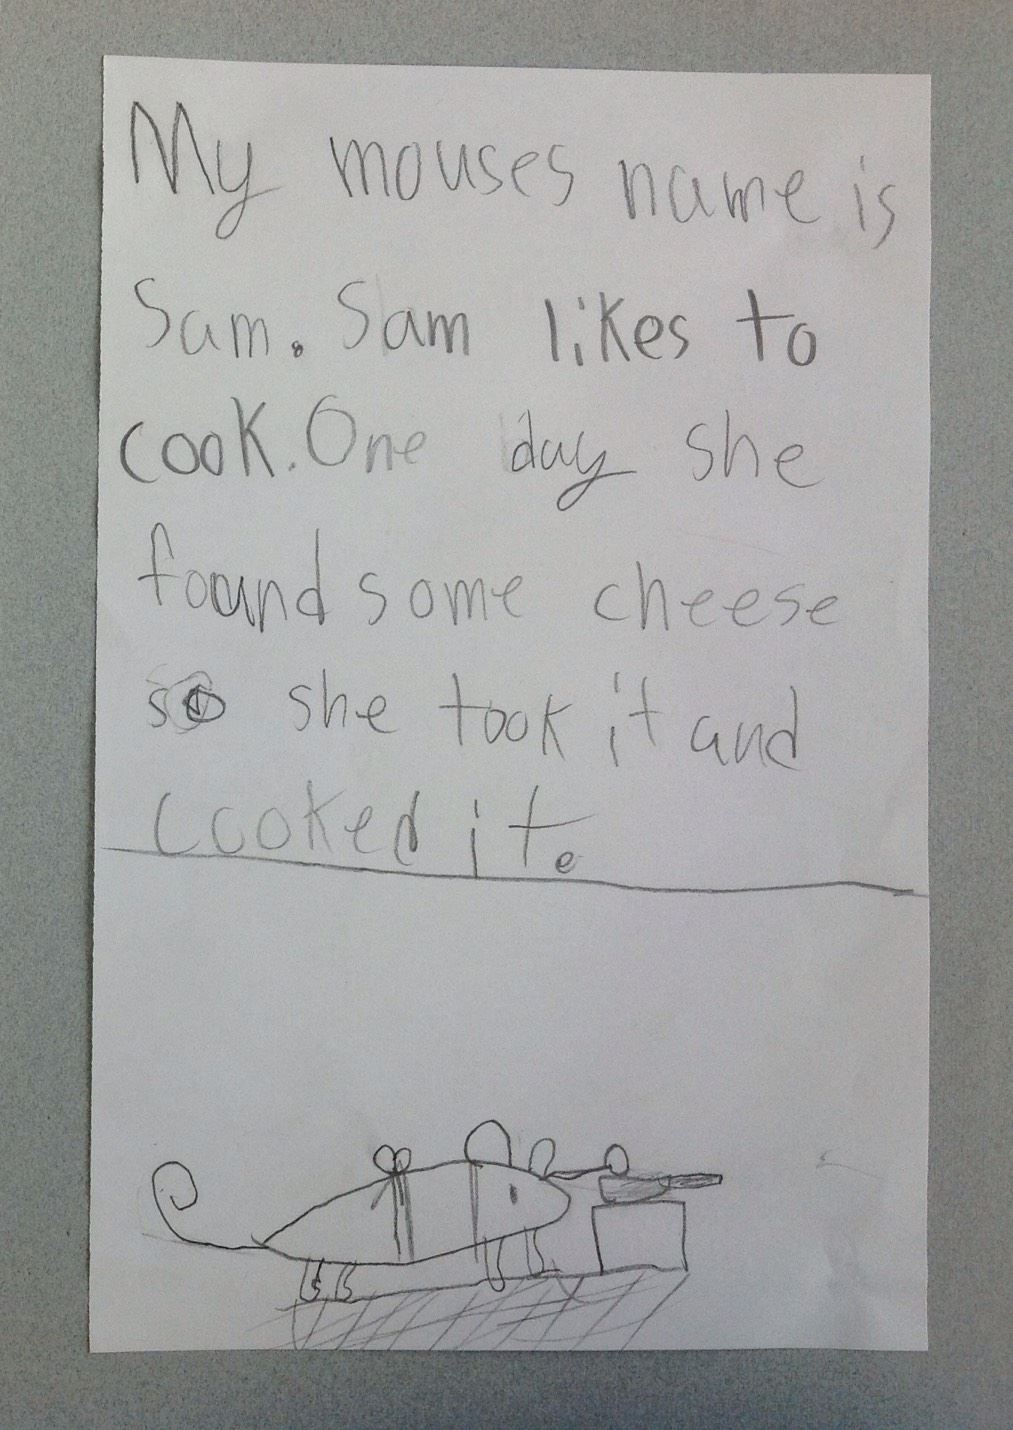 My mouses name is
Sam. Sam likes to
cook. One day she
found some cheese
so she took it and
cooked it.